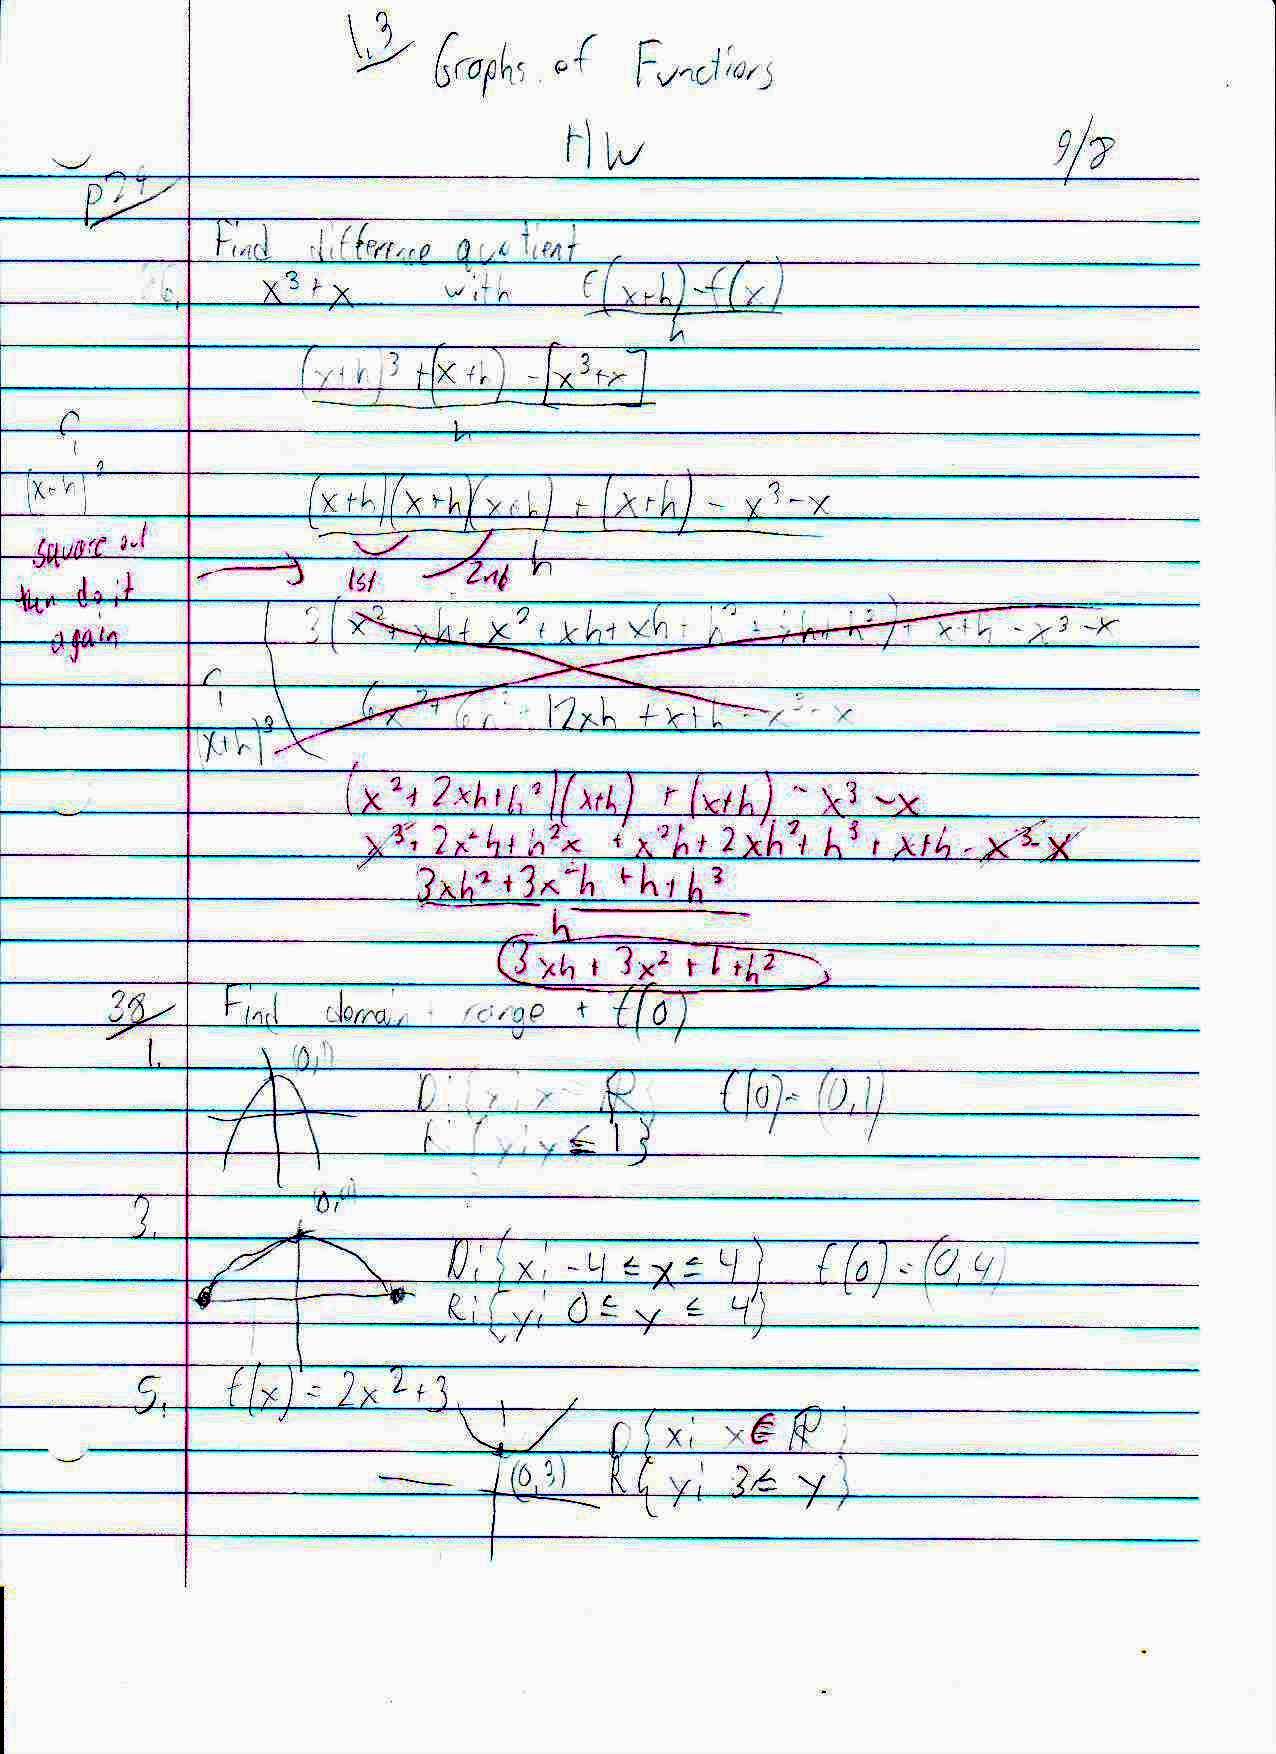 1.3 Graphs of Functions
HW 9/8
p24
Find difference quotient
x³+x with f(x+h)-f(x)
h
(x+h)³+(x+h)-[x³+x]
h
(x+h)³
(x+h)(x+h)(x+h)+(x+h)-x³-x
h
square out
then do it
again
1st 2nd
3(x²+xh+x²+xh+xh+h²+xh+h²)+x+h-x³-x
(x+h)³
6x²+6h²+12xh+x+h-x³-x
(x²+2xh+h²)(x+h)+(x+h)-x³-x
x³+2x²h+h²x+x²h+2xh²+h³+x+h-x³-x
3xh²+3x²h+h+h³
h
3xh+3x²+1+h²
38 Find domain range + f(0)
1. (0,1) D:{x; x = ℝ} f(0)=(0,1)
R:{y; y≤1}
3. D:{x; -4≤x≤4} f(0)=(0,4)
R:{y; 0≤y≤4}
5. f(x)=2x²+3
D{x; x∈ℝ}
(0,3) R{y; 3≤y}